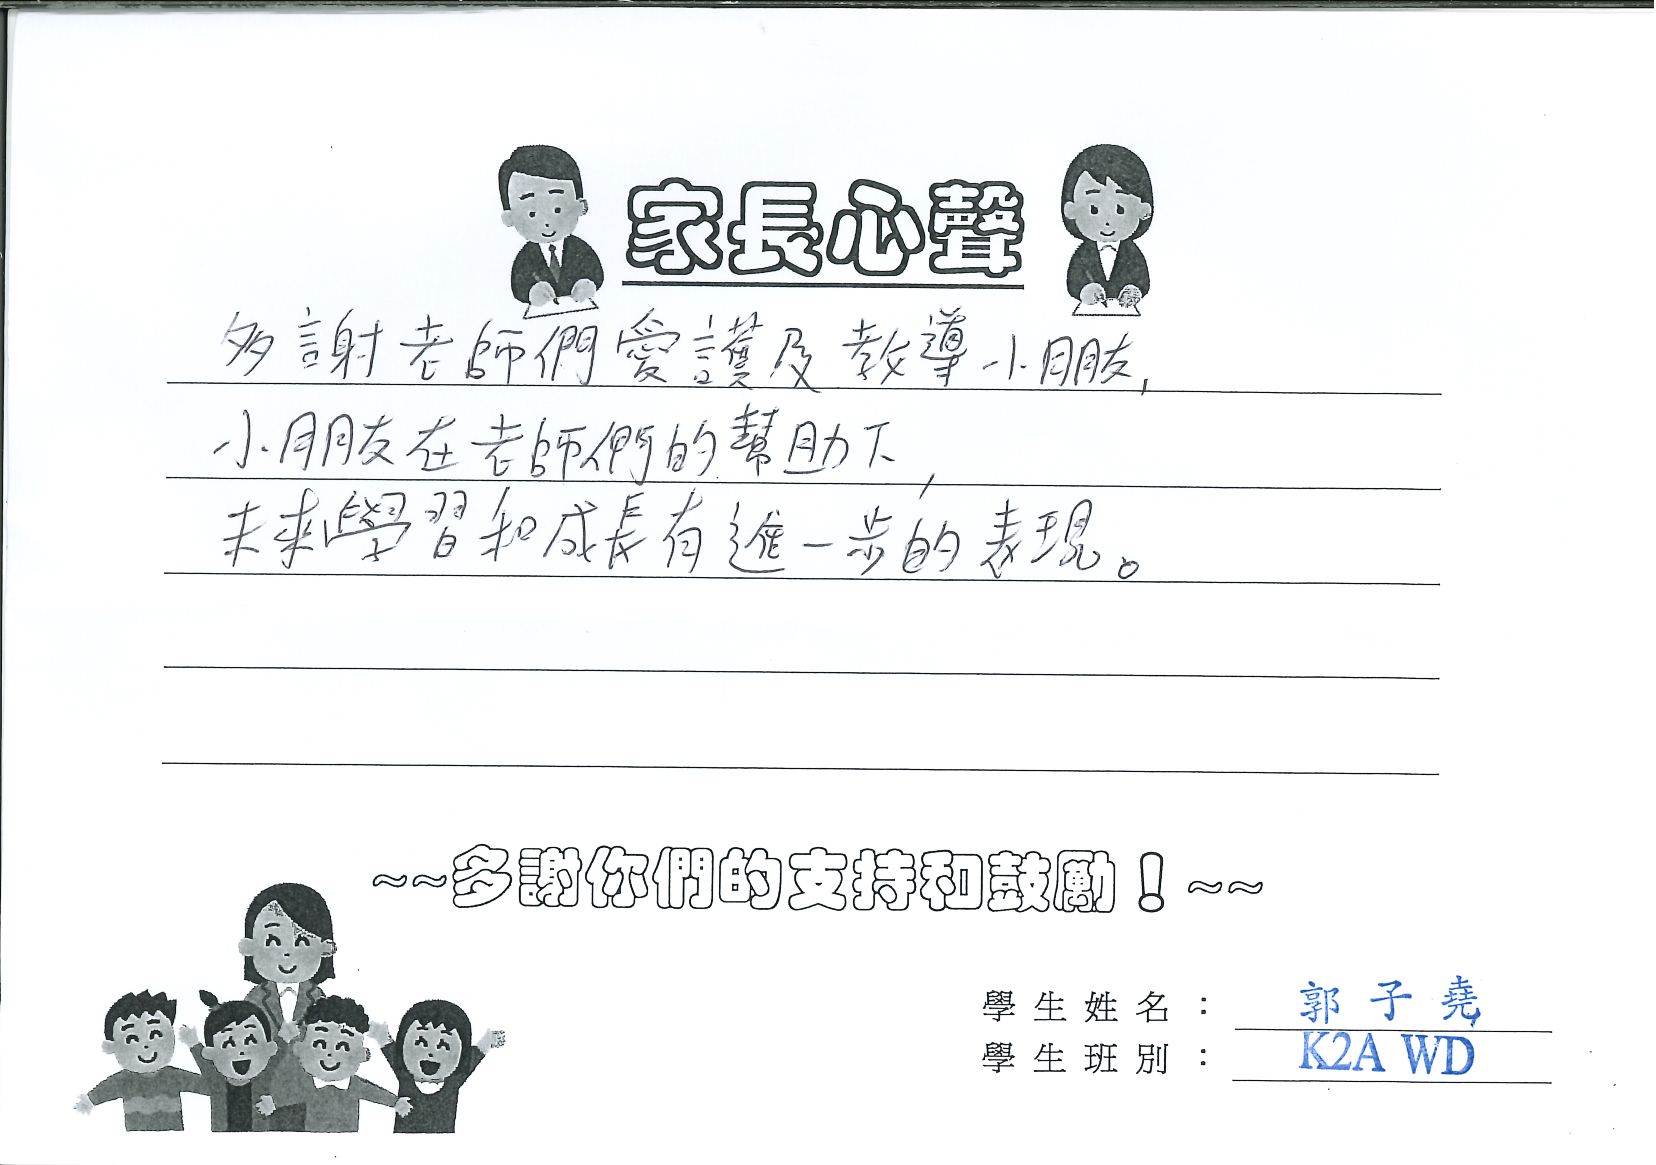 家長心聲
多謝老師們愛護及教導小朋友,
小朋友在老師們的幫助下,
未來學習和成長有進一步的表現。
~~多謝你們的支持和鼓勵！~~
學生姓名： 郭子堯
學生班別： K2A WD